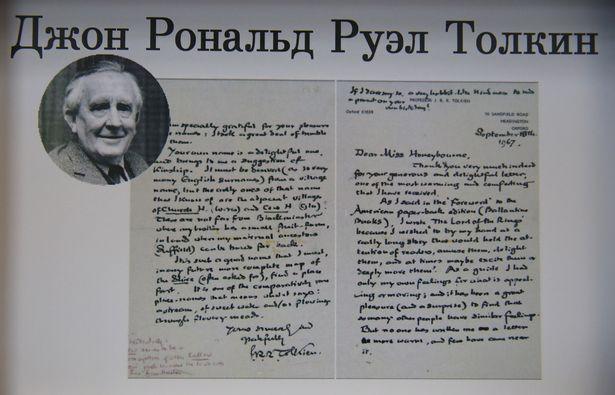 Джон Рональд Руэл Толкин
am specially grateful for your pleasure
names: I took a great deal of trouble
them.
Your own name is a delightful one,
and brings to me a suggestion of
Kinship. It must be derived (as so very
many English surnames) from a village
name, but the only ones of that name
that I know of are the adjacent village
of Church H. (Worcs) and Cow H (Glos)
They are not far from
where my brother has a small fruit-farm,
inland where my maternal ancestors
(Suffield) came from.
This such a good name that I must,
in any future more complete map of
the Shire (often asked for), find a place
for it. It is one of the comparatively rare
place-names that means what it says:
a stream, of sweet water and/or flowing
through flowery meads.
Yours sincerely and
gratefully
J.R.R. Tolkien.
PROFESSOR J. R. R. TOLKIEN
Oxford 61639
76 SANDFIELD ROAD
HEADINGTON
OXFORD
September
1967.
Dear Miss Honeybourne,
Thank you very much indeed
for your generous and delightful letter,
one of the most warming and comforting
that I have received.
As I said in the 'Foreword' to the
American paper-back edition (Ballantine
Books), I wrote The Lord of the Rings
because I wished "to try my hand at a
really long story that would hold the at-
tention of readers, amuse them, delight
them, and at times maybe excite them or
deeply move them". As a guide I had
only my own feelings for what is appeal-
ing or moving; and it has been a great
pleasure (and a surprise) to find that
so many other people have similar feelings.
But no one has written me a letter
more warm, and few have come near
it.